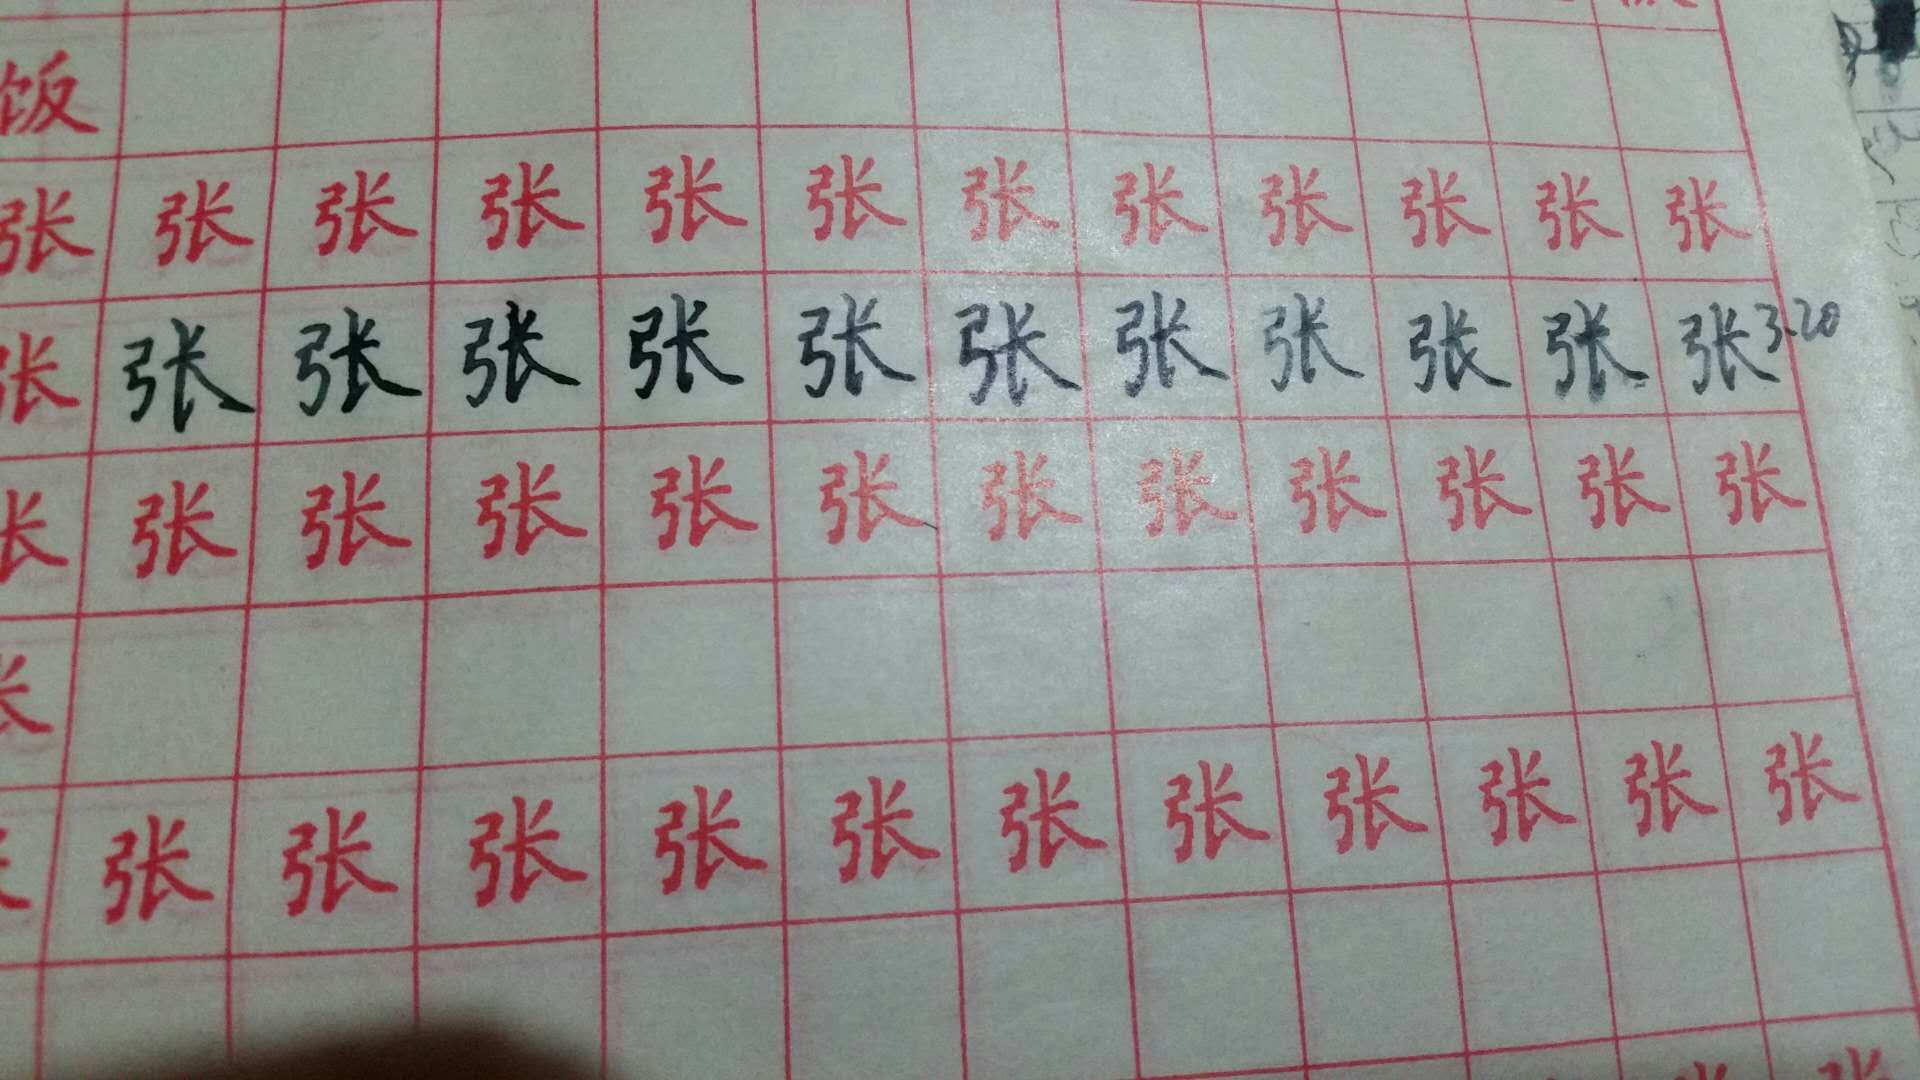 饭
张张张张张张张张张张张张
张张张张张张张张张张张张3.20
张张张张张张张张张张张
张张张张张张张张张张张